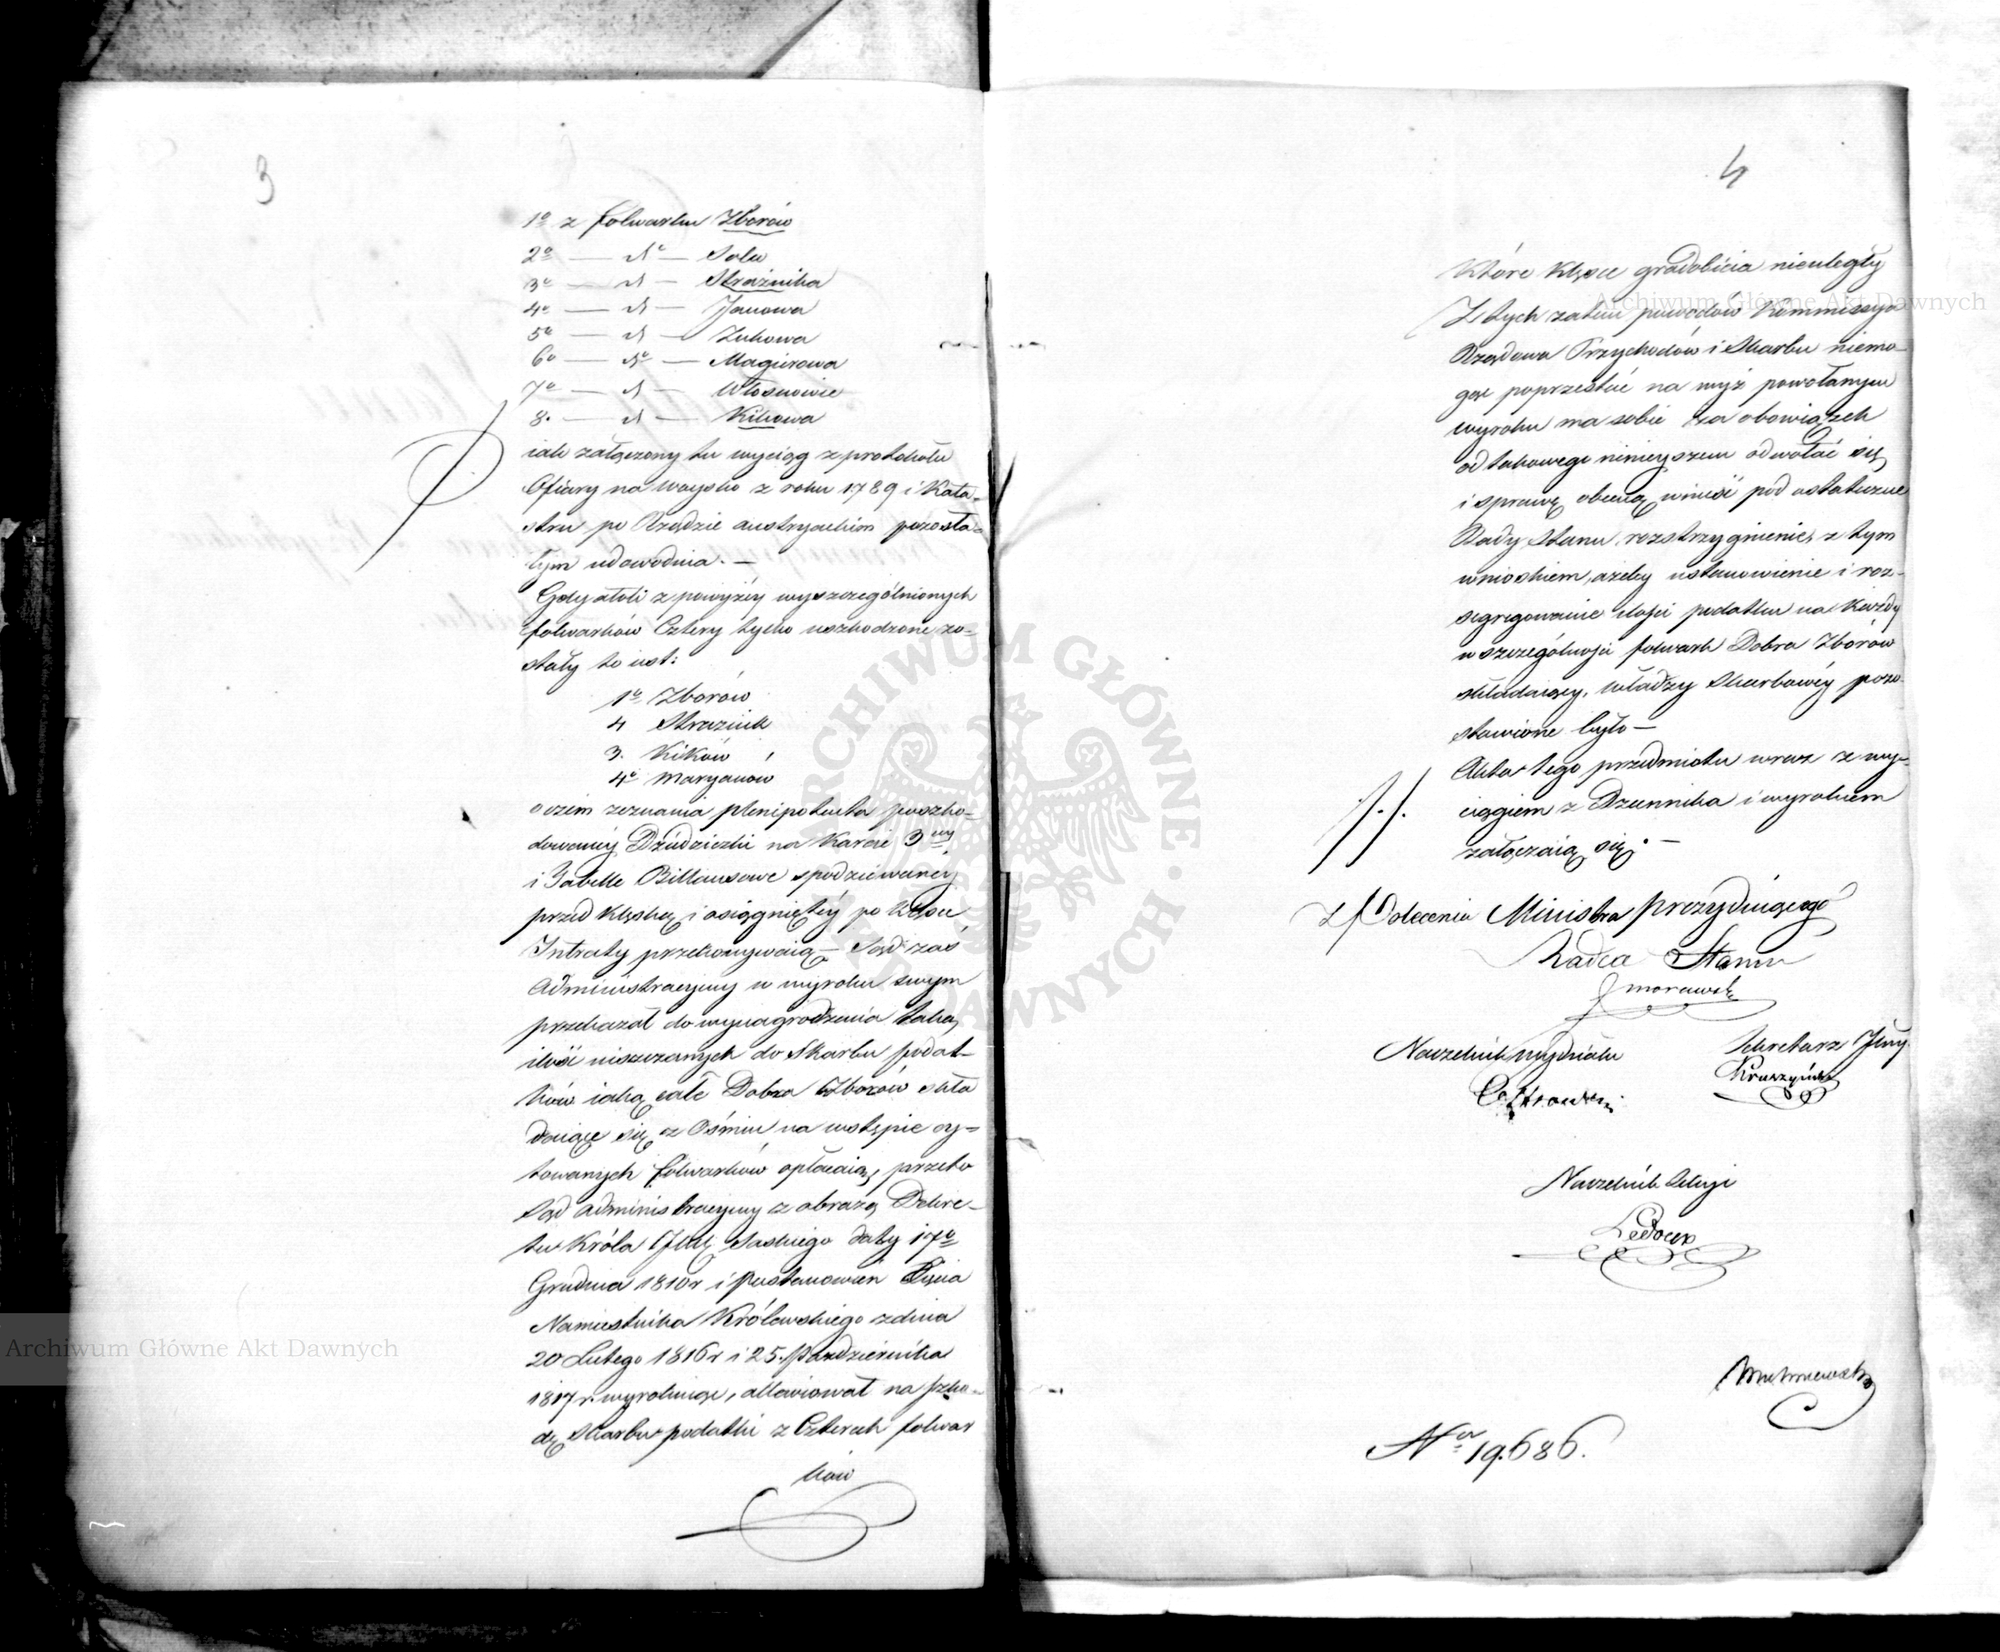 3
1º z folwarku Zborów
2º — dº — Solu
3º — d — Strażnika
4º — d — Janowa
5º — d — Zukowa
6º — dº — Magierowa
7º — d — Włosnowie
8. — d — Kikowa
iak załączony tu wyciąg z protokółu
Ofiary na woysko z roku 1789 i Kata-
stru po Rządzie austryackim pozosta-
łym udowodnia. —
Gdy atoli z powyżéy wyszczególnionych
folwarków Cztery tylko uszkodzone zo-
stały to iest:
1º Zborów
Straznik
3. Kików
4º Maryanów
o czém zeznania plenipotenta poszko-
dowanéy Dziedziczki na Karcie 3ciey
i Tabelle Billansowe spodziéwanéy
przed klęską i osiągniętéy po klęsce
Intraty przekonywaią — Sąd zaś
Administracyiny w wyroku swym
przekazał do wynagrodzenia taką
ilość niszczanych do Skarbu podat-
ków iaką całe Dobra Zborów skła
daiące się z Ośmiu na wstępie cy-
towanych folwarków opłacaią, przeto
Sąd administracyiny z obrazą Dekre-
tu Króla Saskiego daty 17º
Grudnia 1810 r i Postanowien Xięcia
Namiestnika Królewskiego z dnia
20 Lutego 1816 r i 25. Października
1817 r. wyrokuiąc, alleviował na szko-
dę Skarbu podatki z Czterech folwar
ków
4
Które klęsce gradobicia nieuległy
Z tych zatem powodów Kommissya
Rządowa Przychodów i Skarbu niemo-
gąc poprzestać na wyż powołanym
wyroku ma sobie za obowiązek
od takowego ninieyszem odwołać się
i sprawę obecną wnieść pod ostateczne
Rady Stanu rozstrzygnienie, z tym
wnioskiem, ażeby ustanowienie i roz-
segregowanie ilości podatku na każdy
w szczególności folwark Dobra Zborów
składaiący, władzy Skarbowéy pozo-
stawione było —
Akta tego przedmiotu wraz z wy-
ciągiem z Dziennika i wyrokiem
załączaią się. —
Z Polecenia Ministra prezyduiącego
Radca Stanu
Morawski
Naczelnik wydziału
Sekretarz Jlny
Kruszyński
Naczelnik Sekcyi
Ledoux
Nº 19.686.
Archiwum Główne Akt Dawnych
Archiwum Główne Akt Dawnych
ARCHIWUM GŁÓWNE AKT DAWNYCH